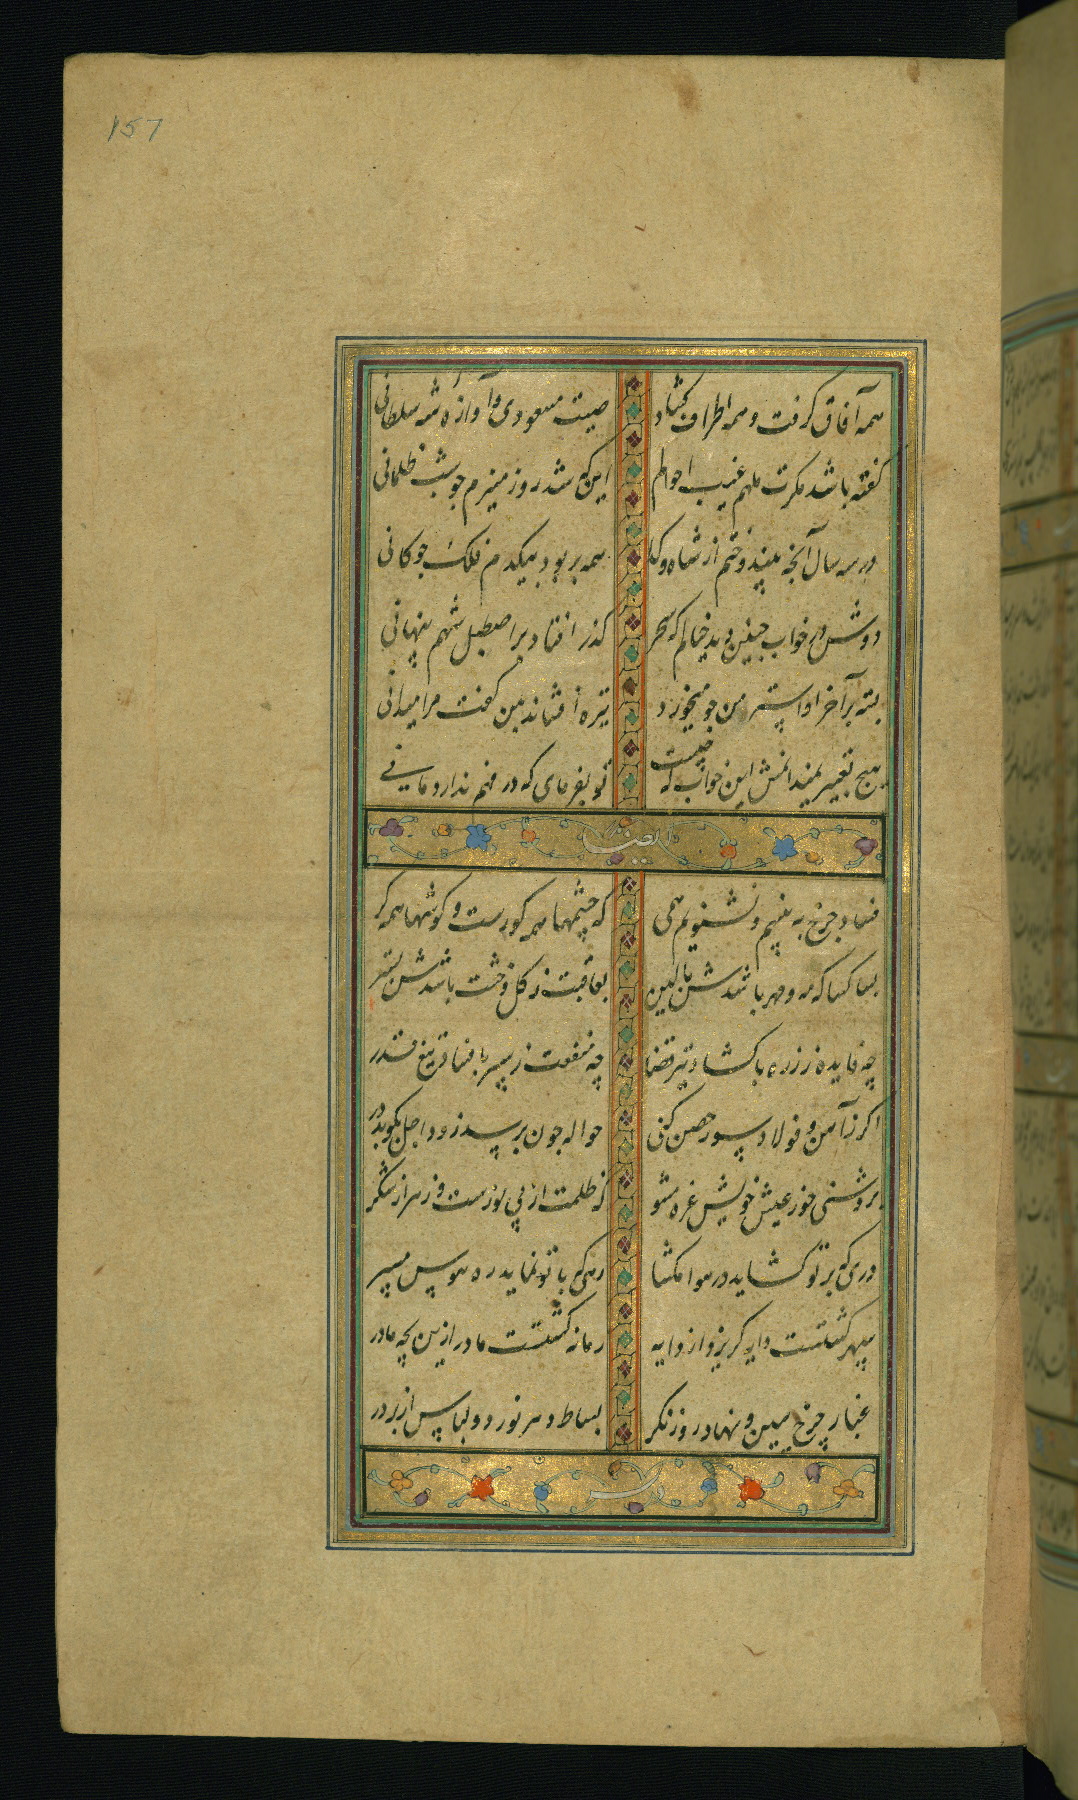 157
همه آفاق گرفت و همه اطراف گشاد صیت مسعودی و آوازهٔ شه سلطانی
گفته باشد مکرت ملهم غیب احوالم این که شد روز منیرم چو شب ظلمانی
در سه سال آنچه بیندوختم از شاه و گدا همه بربود بیکدم فلک چوگانی
دوش در خواب چنین دید خیالم که سحر گذر افتاد بر اصطبل شهم پنهانی
بسته بر آخر او استر من جو میخورد تیزه افشاند بمن گفت مرا میدانی
هیچ تعبیر نمیدانمش این خواب که چیست تو بفرمای که در فهم نداری ثانی
ایضا
فساد چرخ به بینیم و نشنویم همی که چشمها همه کورست و گوشها همه کر
بسا کسا که مه و مهر باشدش بالین بعاقبت ز گل و خشت باشدش بستر
چه فایده ز زره با گشاد تیر قضا چه منفعت ز سپر با نفاذ تیغ قدر
اگر ز آهن و فولاد سور حصن کنی حواله چون برسد زود اجل بکوبد در
بروشنی خور عیش خویش غره مشو که ظلمت از پی نورست و زهر از شکر
دری که بر تو گشاید در هوا مگشا رهی که با تو نماید ره هوس مسپر
سپهر گشتست دایه گریز از دایه زمانه گشتست مادر ازین بچه مادر
غبار چرخ ببین و نهاد روز نگر بساط دهر نورد و لباس از بر در